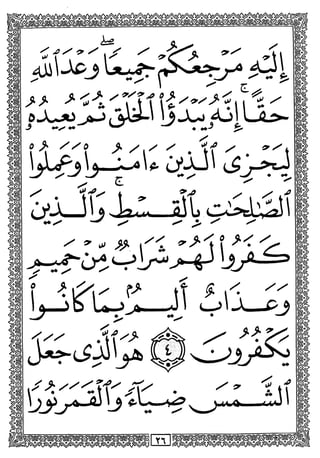 إِلَيْهِ مَرْجِعُكُمْ جَمِيعًاۖ وَعْدَ ٱللَّهِ
حَقًّاۚ إِنَّهُۥ يَبْدَؤُا۟ ٱلْخَلْقَ ثُمَّ يُعِيدُهُۥ
لِيَجْزِىَ ٱلَّذِينَ ءَامَنُوا۟ وَعَمِلُوا۟
ٱلصَّـٰلِحَـٰتِ بِٱلْقِسْطِۚ وَٱلَّذِينَ
كَفَرُوا۟ لَهُمْ شَرَابٌ مِّنْ حَمِيمٍ
وَعَذَابٌ أَلِيمٌۢ بِمَا كَانُوا۟
يَكْفُرُونَ ٤ هُوَ ٱلَّذِى جَعَلَ
ٱلشَّمْسَ ضِيَآءً وَٱلْقَمَرَ نُورًا
٢٦